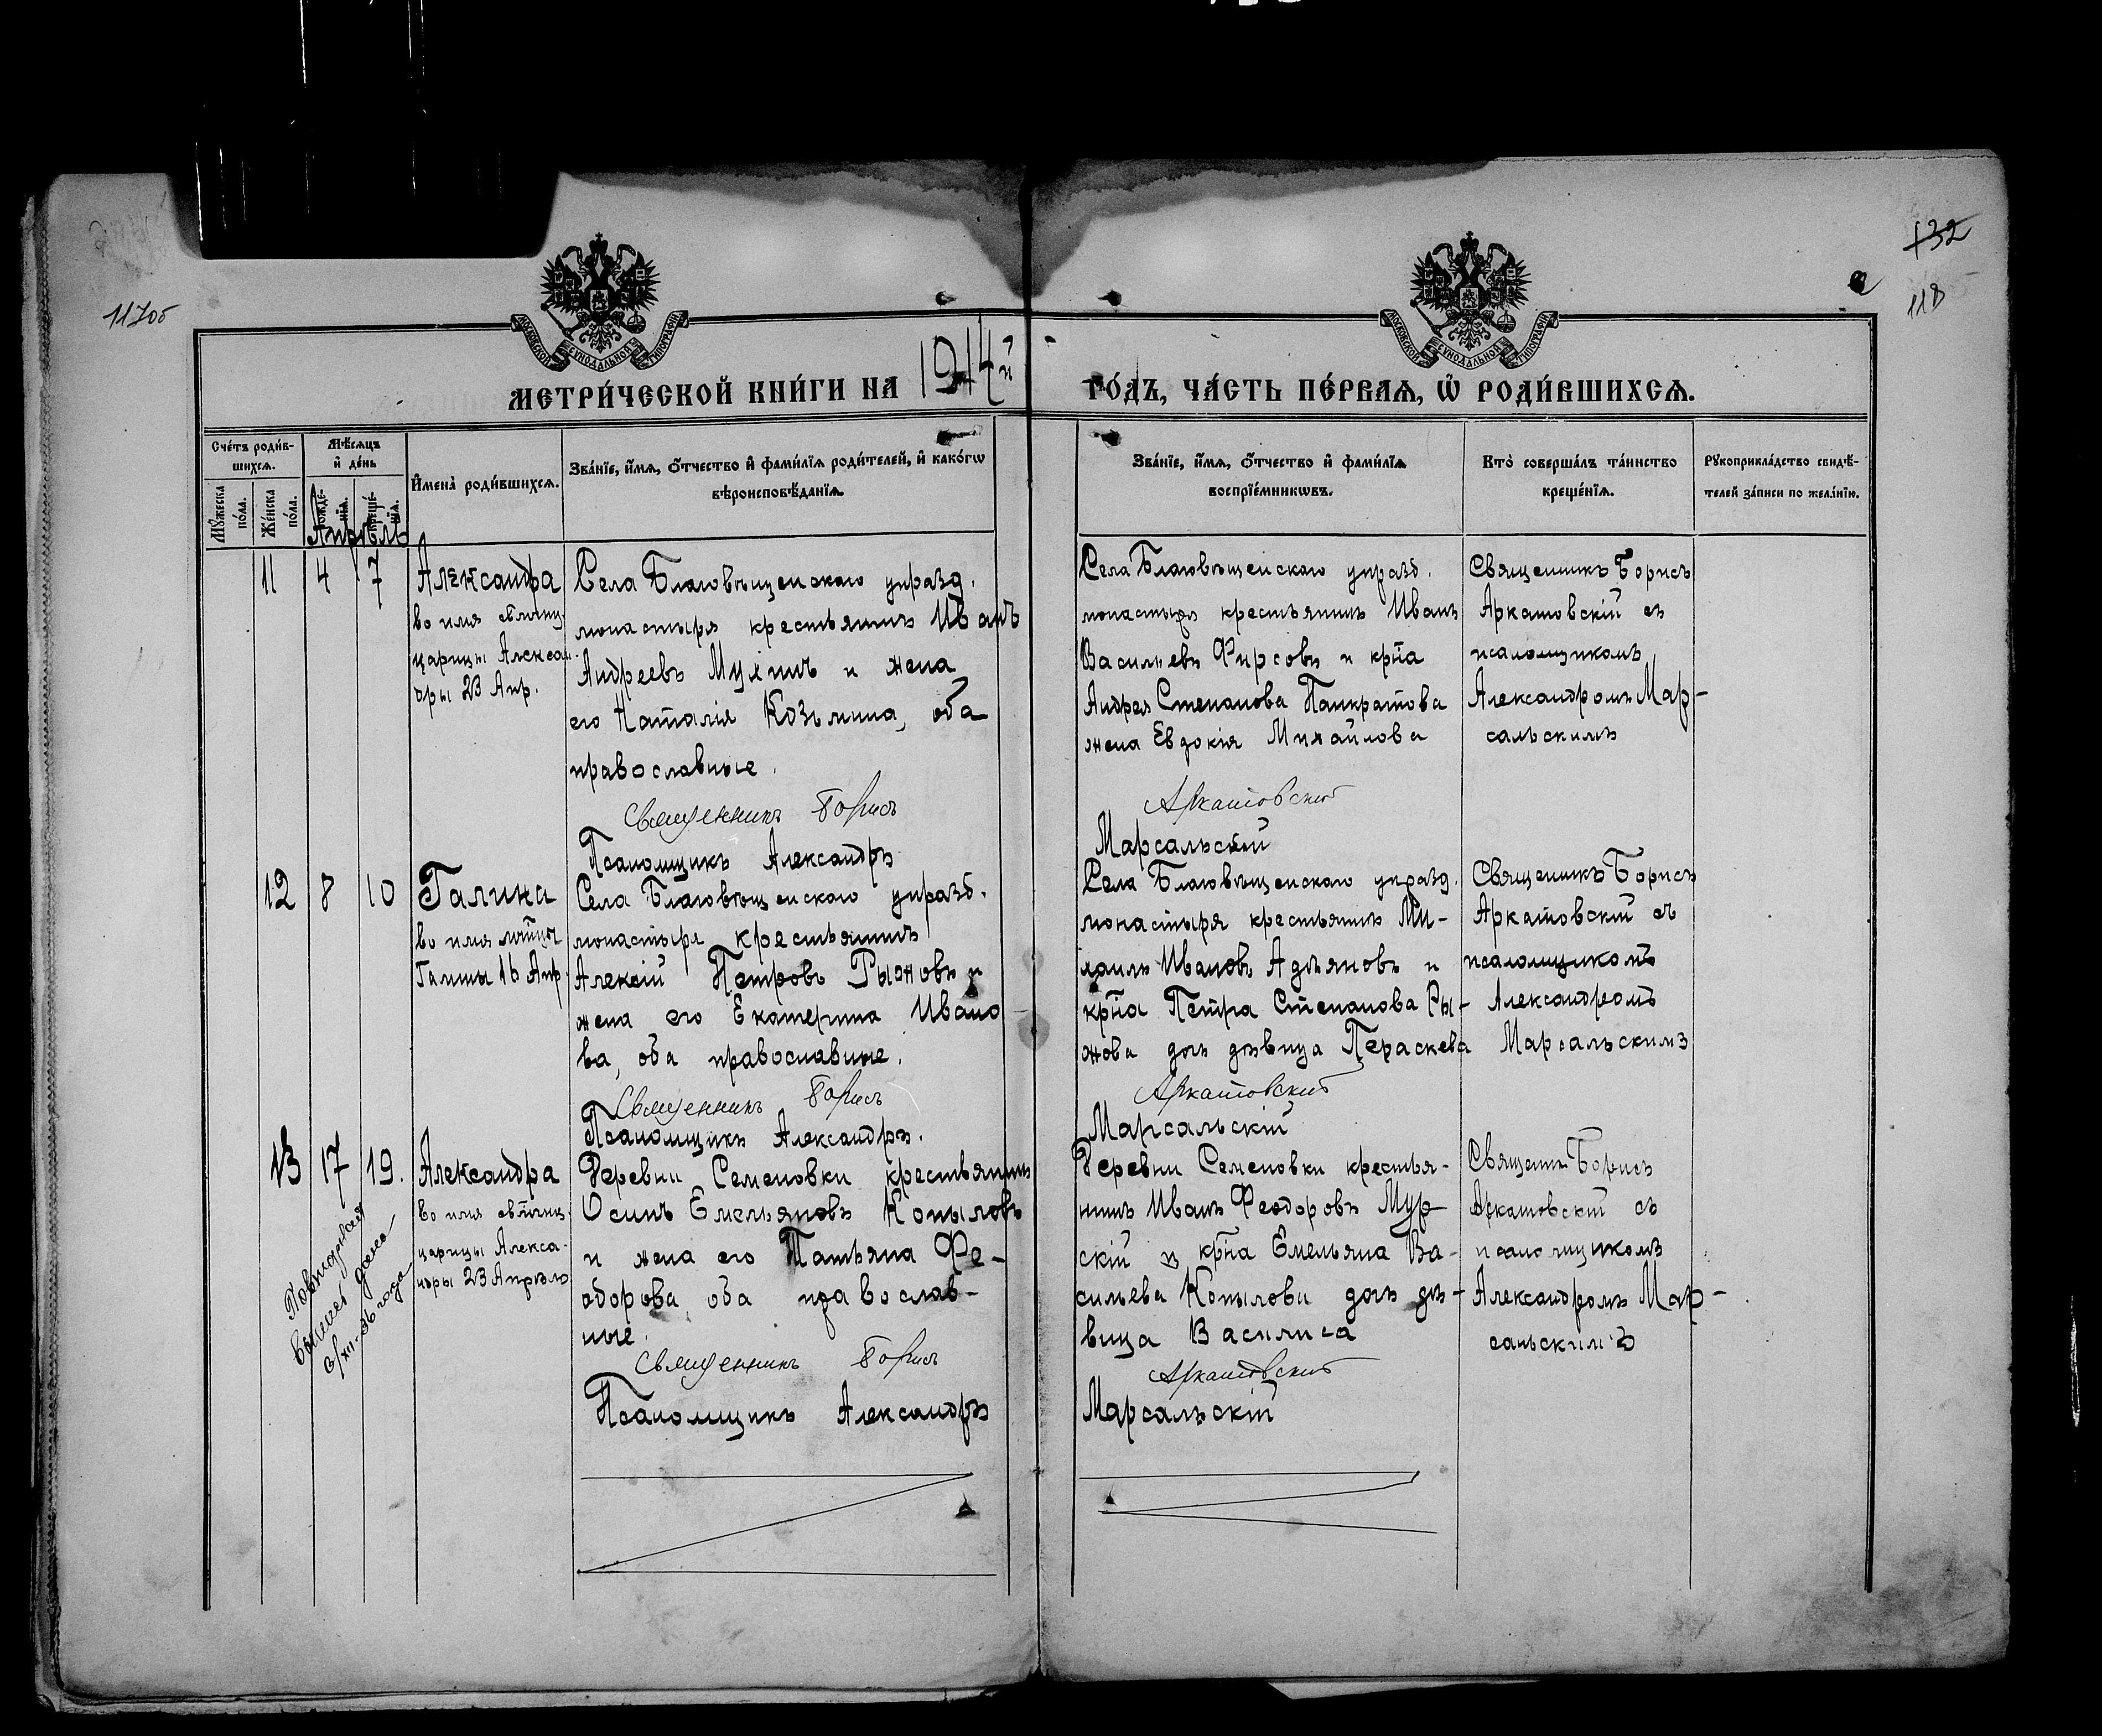 132
118
117об
МОСКОВСКОЙ СѴНОДАЛЬНОЙ ТИПОГРАФІИ
МОСКОВСКОЙ СѴНОДАЛЬНОЙ ТИПОГРАФІИ
МЕТРИ́ЧЕСКОЙ КНИ́ГИ НА 1914й ГО́ДЪ, ЧА́СТЬ ПЕ́РВАѦ, Ѽ РОДИ́ВШИХСѦ.
Сче́тъ роди́в-
шихсѧ.
Мꙋ́жеска
по́ла.
Же́нска
по́ла.
Мѣ́сѧцъ
и҆ де́нь
рожде́-
нїѧ.
креще́-
нїѧ.
Апрѣль
И҆мена̀ роди́вшихсѧ.
Зва́нїе, и҆́мѧ, ѻ҆́тчество и҆ фами́лїѧ роди́телей, и҆ како́гѡ
вѣроисповѣ́данїѧ.
Зва́нїе, и҆́мѧ, ѻ҆́тчество и҆ фами́лїѧ
воспрїе́мникѡвъ.
Кто̀ соверша́лъ та́инство
креще́нїѧ.
Рꙋкоприкла́дство свидѣ́-
телей за́писи по жела́нїю.
11 4 7
Александра
во имя св мчиц.
царицы Алексан-
дры 23 Апр.
Села Благовѣщенскаго упразд.
монастыря крестьянинъ Иванъ
Андреевъ Мухинъ и жена
его Наталія Козьмина, оба
православные.
Священникъ Борисъ
Псаломщикъ Александръ
Села Благовѣщенскаго упразд.
монастыря крестьянинъ Иванъ
Васильевъ Фирсовъ и кр҃на
Андрея Степанова Панкратова
жена Евдокія Михайлова
Аркатовскій
Марсальскій
Священникъ Борисъ
Аркатовскій съ
псаломщикомъ
Александромъ Мар-
сальскимъ
12 8 10
Галина
во имя мчицы
Галины 16 Апр.
Села Благовѣщенскаго упразд.
монастыря крестьянинъ
Алексій Петровъ Рыжовъ и
жена его Екатерина Ивано
ва, оба православные.
Священникъ Борисъ
Псаломщикъ Александръ.
Села Благовѣщенскаго упразд.
монастыря крестьянинъ Ми-
хаилъ Ивановъ Адьяновъ и
кр҃на Петра Степанова Ры-
жова дочь дѣвица Параскева
Аркатовскій
Марсальскій
Священникъ Борисъ
Аркатовскій съ
псаломщикомъ
Александромъ
Марсальскимъ
13 17 19.
Александра
во имя св мчиц.
царицы Алекса-
ндры 23 Апрѣля
Деревни Семеновки крестьянинъ
Осипъ Емельяновъ Копыловъ
и жена его Татьяна Фе-
одорова, оба православ-
ные.
Священникъ Борисъ
Псаломщикъ Александръ
Деревни Семеновки крестья-
нинъ Иванъ Феодоровъ Мур
скій и кр҃на Емельяна Ва-
сильева Копылова дочь дѣ-
вица Василиса
Аркатовскій
Марсальскій
Священ. Борисъ
Аркатовскій съ
псаломщикомъ
Александромъ Мар-
сальскимъ
Повторная
выпись дана
3/XII-36 года